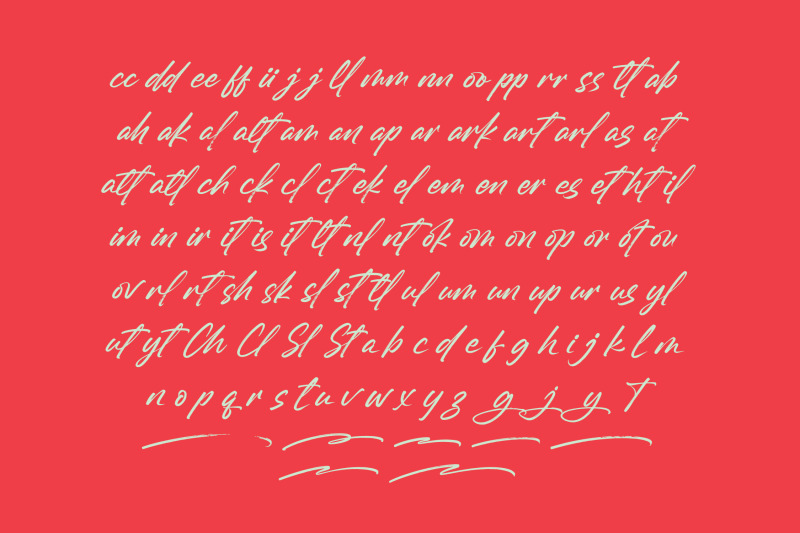 cc dd ee ff ii j j ll mm nn oo pp rr ss tt ab
ah ak al alt am an ap ar ark art arl as at
att atl ch ck cl ct ek el em en er es et ht il
im in ir it is it lt nl nt ok om on op or ot ou
ov rl rt sh sk sl st tl ul um un up ur us yl
ut yt Ch Cl Sl St a b c d e f g h i j k l m
n o p q r s t u v w x y z g j y T